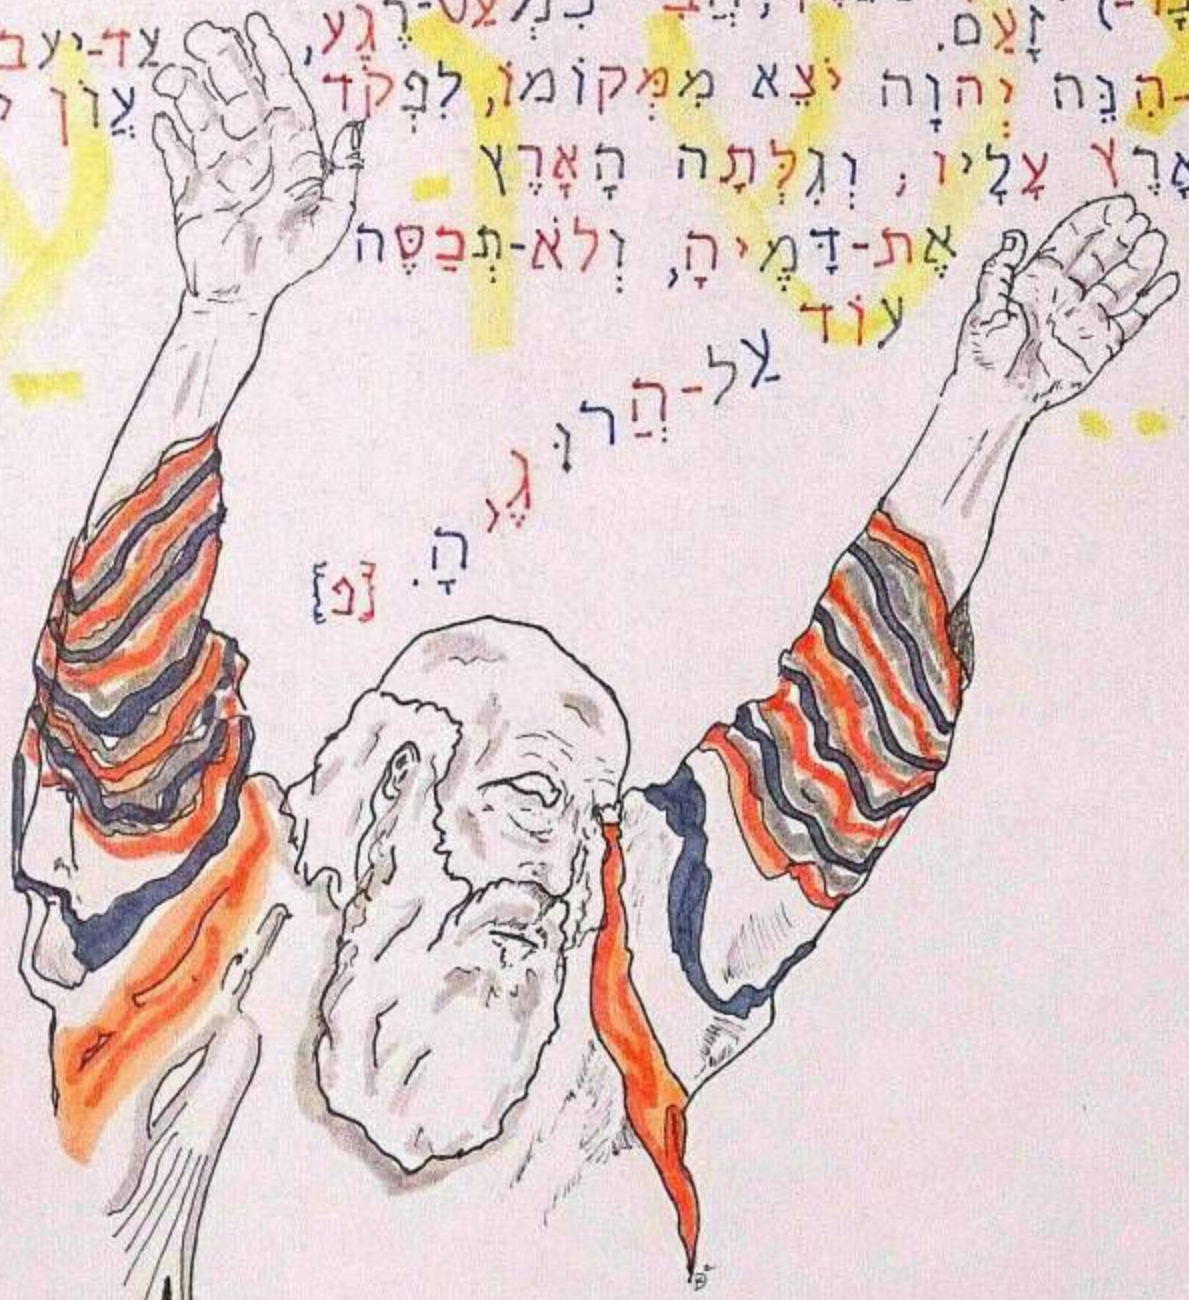 כִמְעַט-רֶגַע, עַד-יעב
זָעַם.
-הִנֵּה יְהוָה יֹצֵא מִמְּקוֹמוֹ, לִפְקֹד עֲוֺן
אָרֶץ עָלָיו ; וְגִלְּתָה הָאָרֶץ
אֶת-דָּמֶיהָ, וְלֹא-תְכַסֶּה
עוֹד
עַל-הֲרוּגֶ,הָ.
{פ}